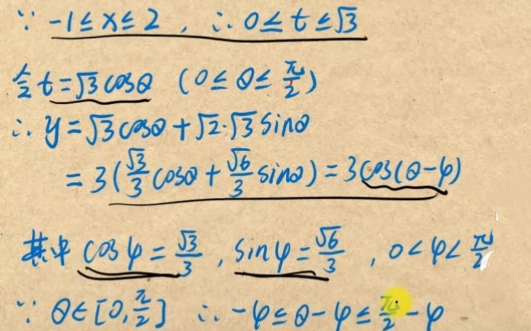 ∵ -1≤x≤2 , ∴ 0≤t≤√3
令t=√3cosθ (0≤θ≤π/2)
∴ y=√3cosθ+√2·√3sinθ
=3(√3/3cosθ+√6/3sinθ)=3cos(θ-φ)
其中 cosφ=√3/3 , sinφ=√6/3 , 0<φ<π/2
∵ θ∈[0,π/2] ∴ -φ≤θ-φ≤π/2-φ